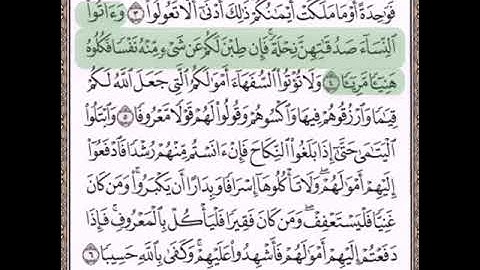 فَوَٰحِدَةً أَوْ مَا مَلَكَتْ أَيْمَٰنُكُمْ ۚ ذَٰلِكَ أَدْنَىٰٓ أَلَّا تَعُولُوا۟ ٣ وَءَاتُوا۟
ٱلنِّسَآءَ صَدُقَٰتِهِنَّ نِحْلَةً ۚ فَإِن طِبْنَ لَكُمْ عَن شَىْءٍ مِّنْهُ نَفْسًا فَكُلُوهُ
هَنِيٓـًٔا مَّرِيٓـًٔا ٤ وَلَا تُؤْتُوا۟ ٱلسُّفَهَآءَ أَمْوَٰلَكُمُ ٱلَّتِى جَعَلَ ٱللَّهُ لَكُمْ
قِيَٰمًا وَٱرْزُقُوهُمْ فِيهَا وَٱكْسُوهُمْ وَقُولُوا۟ لَهُمْ قَوْلًا مَّعْرُوفًا ٥ وَٱبْتَلُوا۟
ٱلْيَتَٰمَىٰ حَتَّىٰٓ إِذَا بَلَغُوا۟ ٱلنِّكَاحَ فَإِنْ ءَانَسْتُم مِّنْهُمْ رُشْدًا فَٱدْفَعُوٓا۟
إِلَيْهِمْ أَمْوَٰلَهُمْ ۖ وَلَا تَأْكُلُوهَآ إِسْرَافًا وَبِدَارًا أَن يَكْبَرُوا۟ ۚ وَمَن كَانَ
غَنِيًّا فَلْيَسْتَعْفِفْ ۖ وَمَن كَانَ فَقِيرًا فَلْيَأْكُلْ بِٱلْمَعْرُوفِ ۚ فَإِذَا
دَفَعْتُمْ إِلَيْهِمْ أَمْوَٰلَهُمْ فَأَشْهِدُوا۟ عَلَيْهِمْ ۚ وَكَفَىٰ بِٱللَّهِ حَسِيبًا ٦